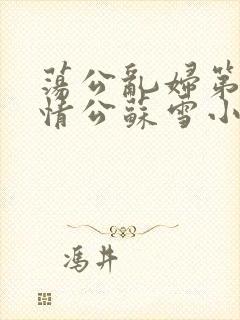 蕩公亂婦第
情公蘇雪小
馮井